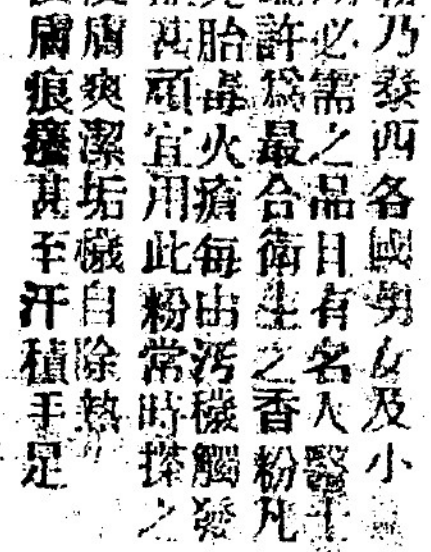 乃泰西各國男女及小
必需之品且有名人醫士
許爲最合衛生之香粉凡
胎毒火瘡每由污穢觸發
甚頑宜用此粉常時搽之
膚爽潔垢穢自除熱
膚痕癢甚至汗積手足